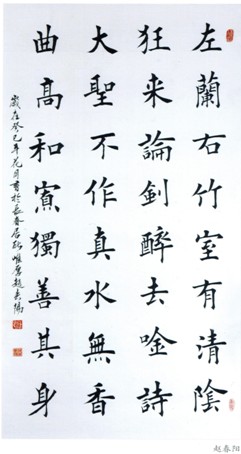 左蘭右竹室有清陰
狂来論劍醉去唫詩
大聖不作真水無香
曲高和寡獨善其身
歲在癸巳年花月書於長春居砳唯屋趙春陽
赵春阳